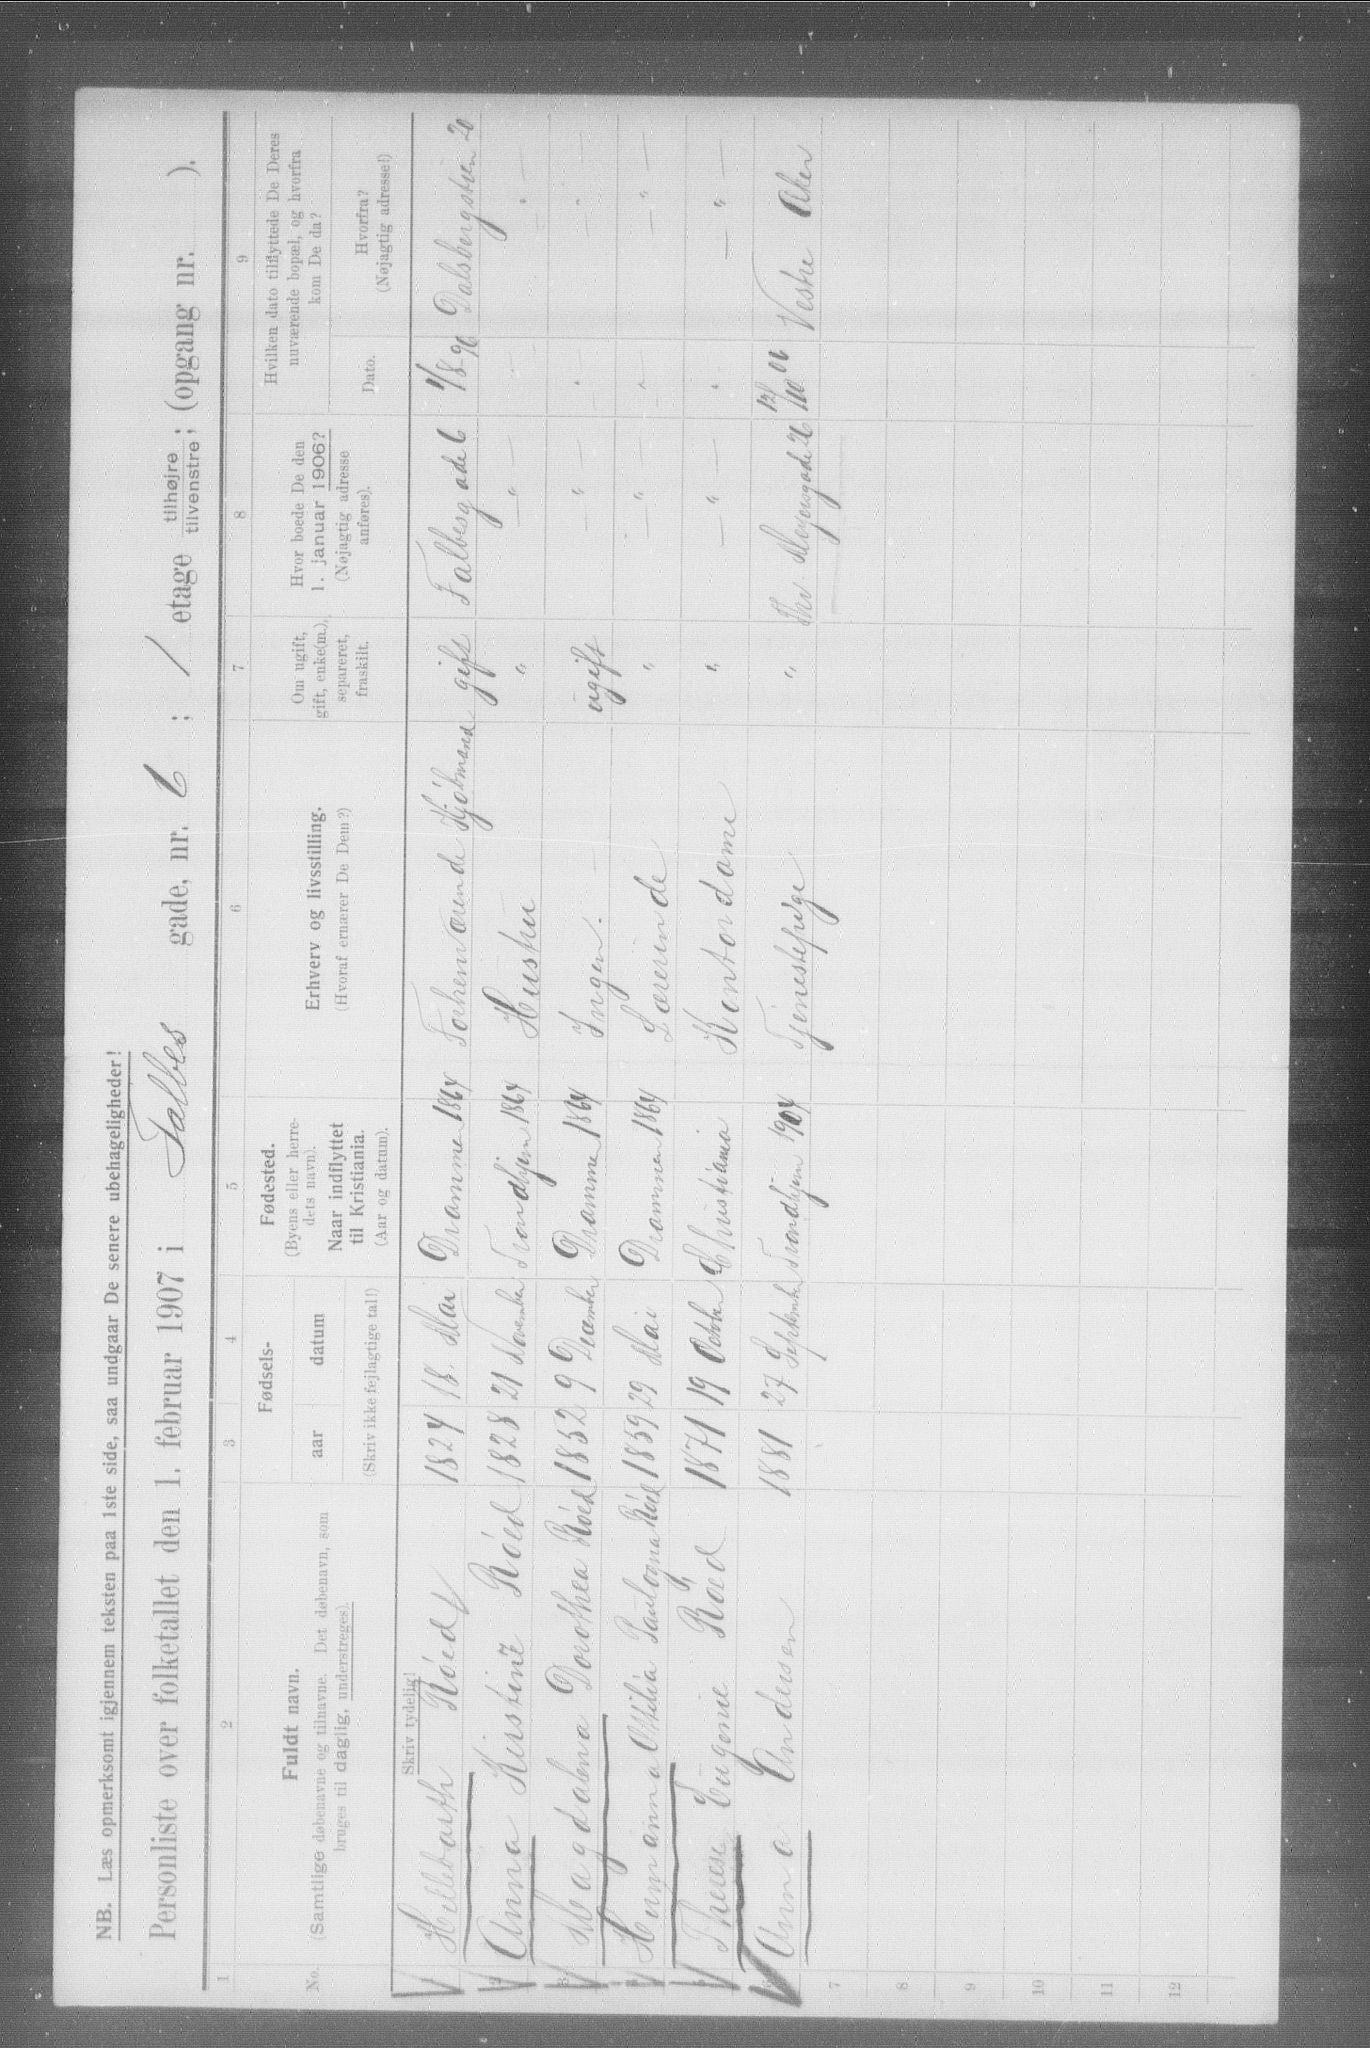 NB. Læs opmerksomt igjennem teksten paa 1ste side, saa undgaar De senere ubehageligheder!
Personliste over folketallet den 1. februar 1907 i Falbes gade, nr. 6 ; 1 etage tilhøjre tilvenstre ; (opgang nr. ).
1 2 3 4 5 6 7 8 9
No.
Fuldt navn.
(Samtlige døbenavne og tilnavne. Det døbenavn, som
bruges til daglig, understreges).
Fødsels-
aar datum
(Skriv ikke fejlagtige tal!)
Fødested.
(Byens eller herre-
dets navn).
Naar indflyttet
til Kristiania.
(Aar og datum).
Erhverv og livsstilling.
(Hvoraf ernærer De Dem?)
Om ugift,
gift, enke(m.),
separeret,
fraskilt.
Hvor boede De den
1. januar 1906?
(Nøjagtig adresse
anføres).
Hvilken dato tilflyttede De Deres
nuværende bopæl, og hvorfra
kom De da?
Dato.
Hvorfra?
(Nøjagtig adresse!)
Skriv tydelig!
1 Röed 1824 18. Mai Drammen 1864 Forhenværende Kjöbmand gift Falbesgade 6 1/8 96 Dalsbergstien 20
2 Anna Kirstine Röed 1828 21 November Trondhjem 1864 Hustru " — " — " —
3 Magdalena Dorothea Röed 1852 9 December Drammen 1864 Ingen. — ugift — " — — " — — " —
4 Hermanna Ottilia Röed 1859 29 Mai Drammen 1864 Lærerinde " — " — — " — — " —
5 Therese Eugenie Röed 1871 19 October Christiania Kontordame " — " — " — " —
6 Anna Andersen 1881 27 September Trondhjem 1904 Tjenestepige " Thv. Meyersgade 26 12/10 06 Vestre Aker
7
8
9
10
11
12